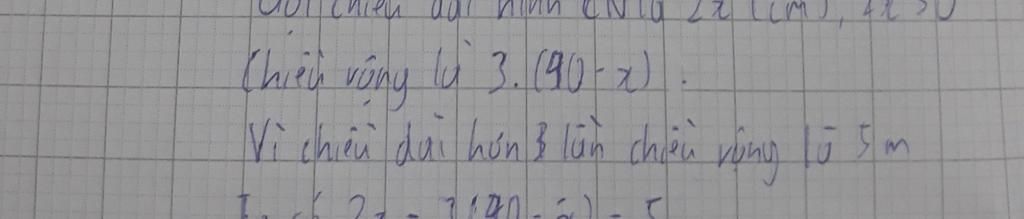 Gọi chiều dài hình CN là 2x (cm), 2x > 0
Chiều rộng là 3.(90-x).
Vì chiều dài hơn 3 lần chiều rộng là 5 m
2x - 3(90-x) = 5